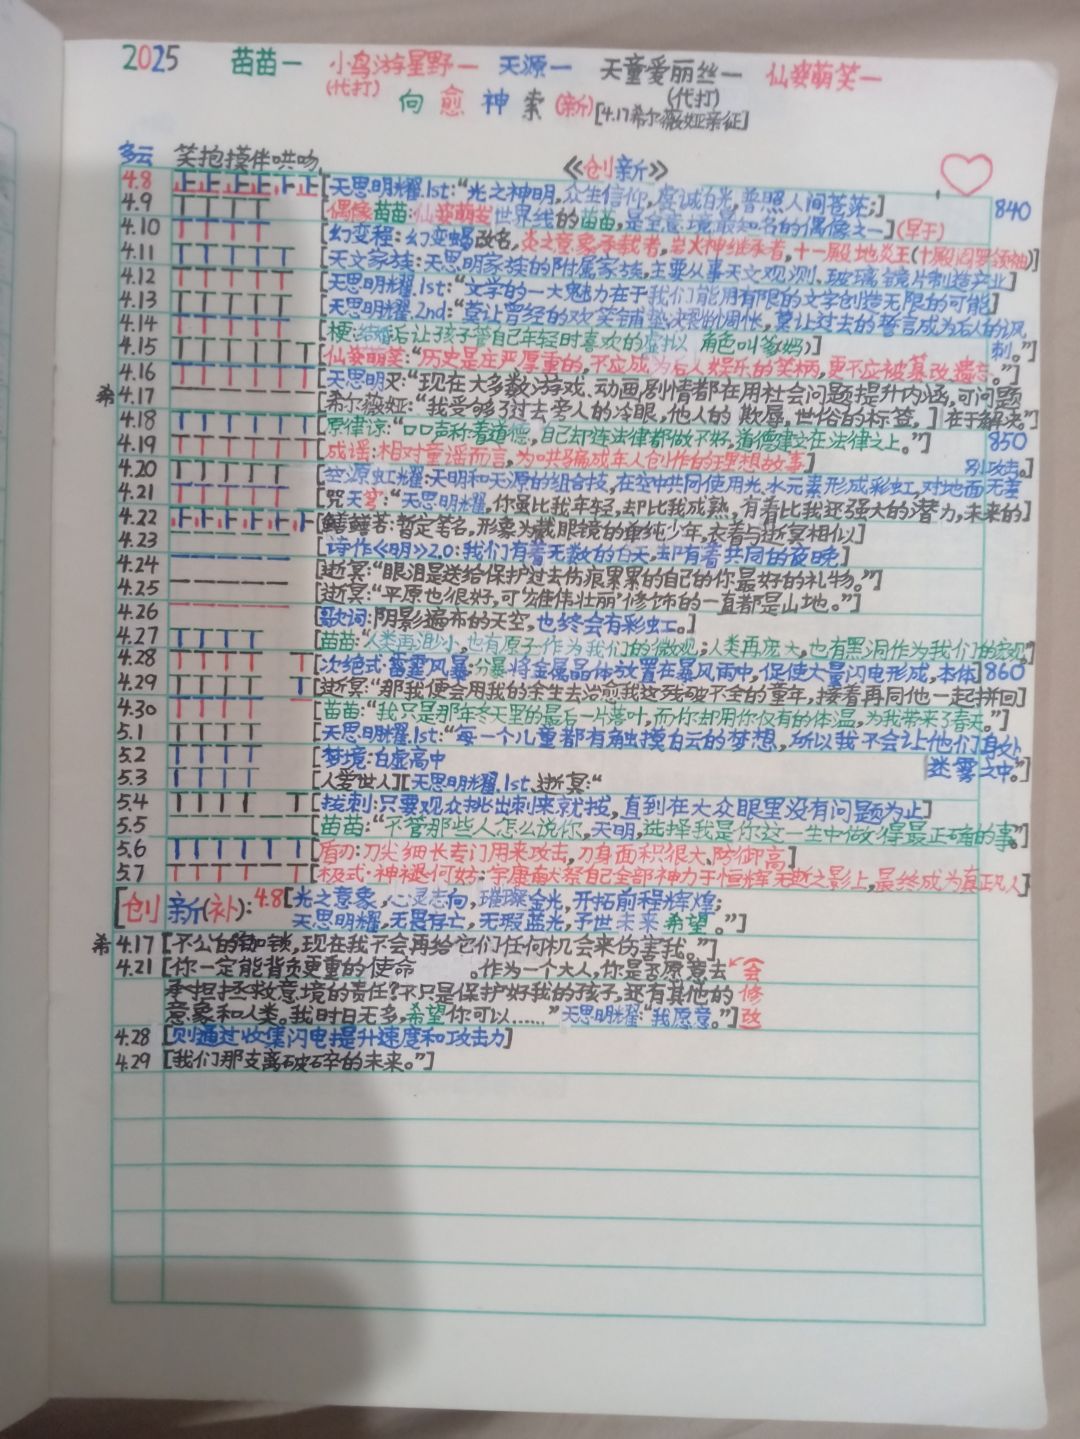 2025 苗苗一 小鸟游星野一 天源一 天童爱丽丝一 仙姿萌笑一
(代打) 向愈神索(新) (代打)
[4.17希尔薇娅亲征]
多云 笑抱摸伴哄吻 《创新》
4.8 正正正正正正 [天思明耀.1st:“光之神明,众生信仰,虔诚白光,普照人间苍茫;]
4.9 [偶像苗苗:仙姿萌笑世界线的苗苗,是全意境最知名的偶像之一](早于) 840
4.10 [幻变程:幻变蝎改名,炎之意象承载者,岩火神继承者,十一殿地炎王(十殿阎罗领袖)]
4.11 [天文家族:天思明家族的附属家族,主要从事天文观测、玻璃镜片制造产业]
4.12 [天思明耀.1st:“文学的一大魅力在于我们能用有限的文字创造无限的可能]
4.13 [天思明耀.2nd:“莫让曾经的欢笑铺垫决裂的惆怅,莫让过去的誓言成为后人的讽
4.14 [梗:结婚后让孩子管自己年轻时喜欢的虚拟 角色叫爹(妈)] 刺。”]
4.15 [仙姿萌笑:“历史是庄严厚重的,不应成为后人娱乐的笑柄,更不应被篡改遗忘。”]
4.16 [天思明灭:“现在大多数游戏、动画剧情都在用社会问题提升内涵,可问题
希4.17 [希尔薇娅:“我受够了过去旁人的冷眼,他人的欺辱,世俗的标签,] 在于解决”]
4.18 [原律凉:“口口声称着道德,自己却连法律都做不好,道德建立在法律之上。”] 850
4.19 [成谣:相对童谣而言,为哄骗成年人创作的理想故事] 别攻击。]
4.20 [空源虹耀:天明和天源的组合技,在空中共同使用光、水元素形成彩虹,对地面无差
4.21 [咒天穹:“天思明耀,你虽比我年轻,却比我成熟,有着比我还强大的潜力,未来的]
4.22 正正正正正正 [鳝鳝者:暂定署名,形象为戴眼镜的单纯少年,衣着与逝冥相似]
4.23 [诗作《明》2.0:我们有着无数的白天,却有着共同的夜晚]
4.24 [逝冥:“眼泪是送给保护过去伤痕累累的自己的你最好的礼物。”]
4.25 [逝冥:“平原也很好,可‘雄伟壮丽’修饰的一直都是山地。”]
4.26 [歌词:阴影遍布的天空,也终会有彩虹。]
4.27 [苗苗:“人类再渺小,也有原子作为我们的微观;人类再庞大,也有黑洞作为我们的宏观”]
4.28 [次绝式·蓄霆风暴:分暴将金属晶体放置在暴风雨中,促使大量闪电形成,本体] 860
4.29 [逝冥:“那我便会用我的余生去治愈我这残破不全的童年,接着再同他一起拼回]
4.30 [苗苗:“我只是那年冬天里的最后一片落叶,而你却用你仅有的体温,为我带来了春天。”]
5.1 [天思明耀.1st:“每一个儿童都有触摸白云的梦想,所以我不会让他们身处
5.2 [梦境:白虚高中 迷雾之中。”]
5.3 [人爱世人][天思明耀.1st、逝冥:“
5.4 [拔刺:只要观众挑出刺来就拔,直到在大众眼里没有问题为止]
5.5 [苗苗:“不管那些人怎么说你,天明,选择我是你这一生中做得最正确的事”]
5.6 [盾刃:刀尖细长专门用来攻击,刀身面积很大,防御高]
5.7 [极式·神褪何妨:宇康献祭自己全部神力于恒辉无逝之影上,最终成为真正凡人]
[创新(补):4.8 [光之意象,心灵志向,璀璨金光,开拓前程辉煌;
天思明耀,无畏存亡,无瑕蓝光,予世未来希望。”]
希4.17 [不公的枷锁,现在我不会再给它们任何机会来伤害我。”]
4.21 [你一定能背负更重的使命 。作为一个大人,你是否愿意去 会
承担拯救意境的责任?不只是保护好我的孩子,还有其他的 修
意象和人类。我时日无多,希望你可以……”天思明耀:“我愿意。”] 改
4.28 [则通过收集闪电提升速度和攻击力]
4.29 [我们那支离破碎的未来。”]